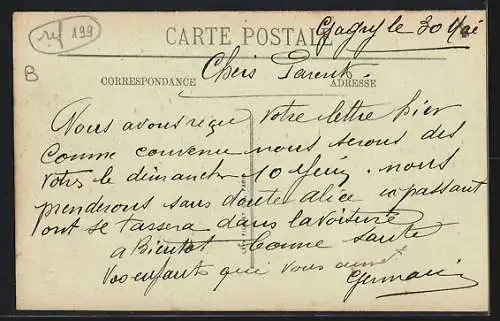 ref 199
CARTE POSTALE
Gagny le 30 Mai
B
Chers Parents
CORRESPONDANCE
ADRESSE
Nous avons reçu votre lettre hier
Comme convenu nous serons des
votres le dimanche 10 Juin. nous
prenderons sans doute alice en passant
ont se tassera dans la voiture
a Bientot bonne sante
Vos enfants qui vous aime
Germain